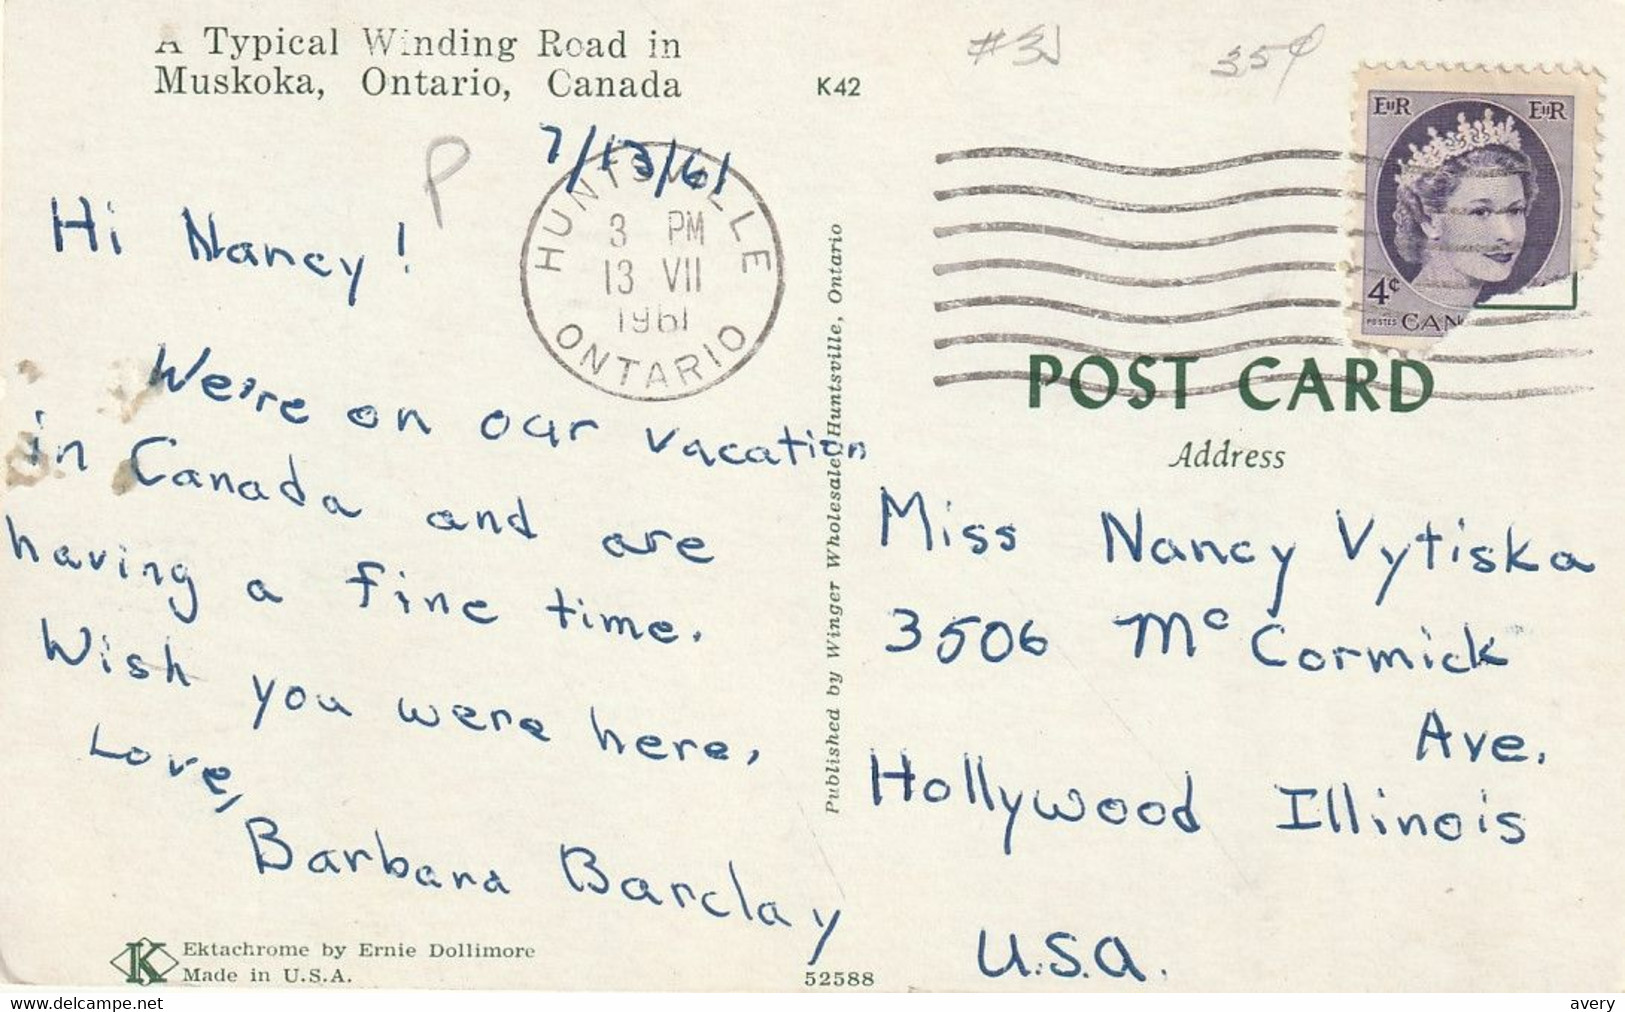 A Typical Winding Road in
Muskoka, Ontario, Canada
K42
35¢
P
7/13/61
HUNTSVILLE
3 PM
13 VII
1961
ONTARIO
EIIR EIIR
4¢
POSTES CAN
Hi Nancy!
We're on our vacation
in Canada and are
having a fine time.
Wish you were here,
Love,
Barbara Barclay
Published by Winger Wholesale, Huntsville, Ontario
POST CARD
Address
Miss Nancy Vytiska
3506 Mc Cormick
Ave.
Hollywood Illinois
U.S.A.
K
Ektachrome by Ernie Dollimore
Made in U.S.A.
52588
www.delcampe.net
avery